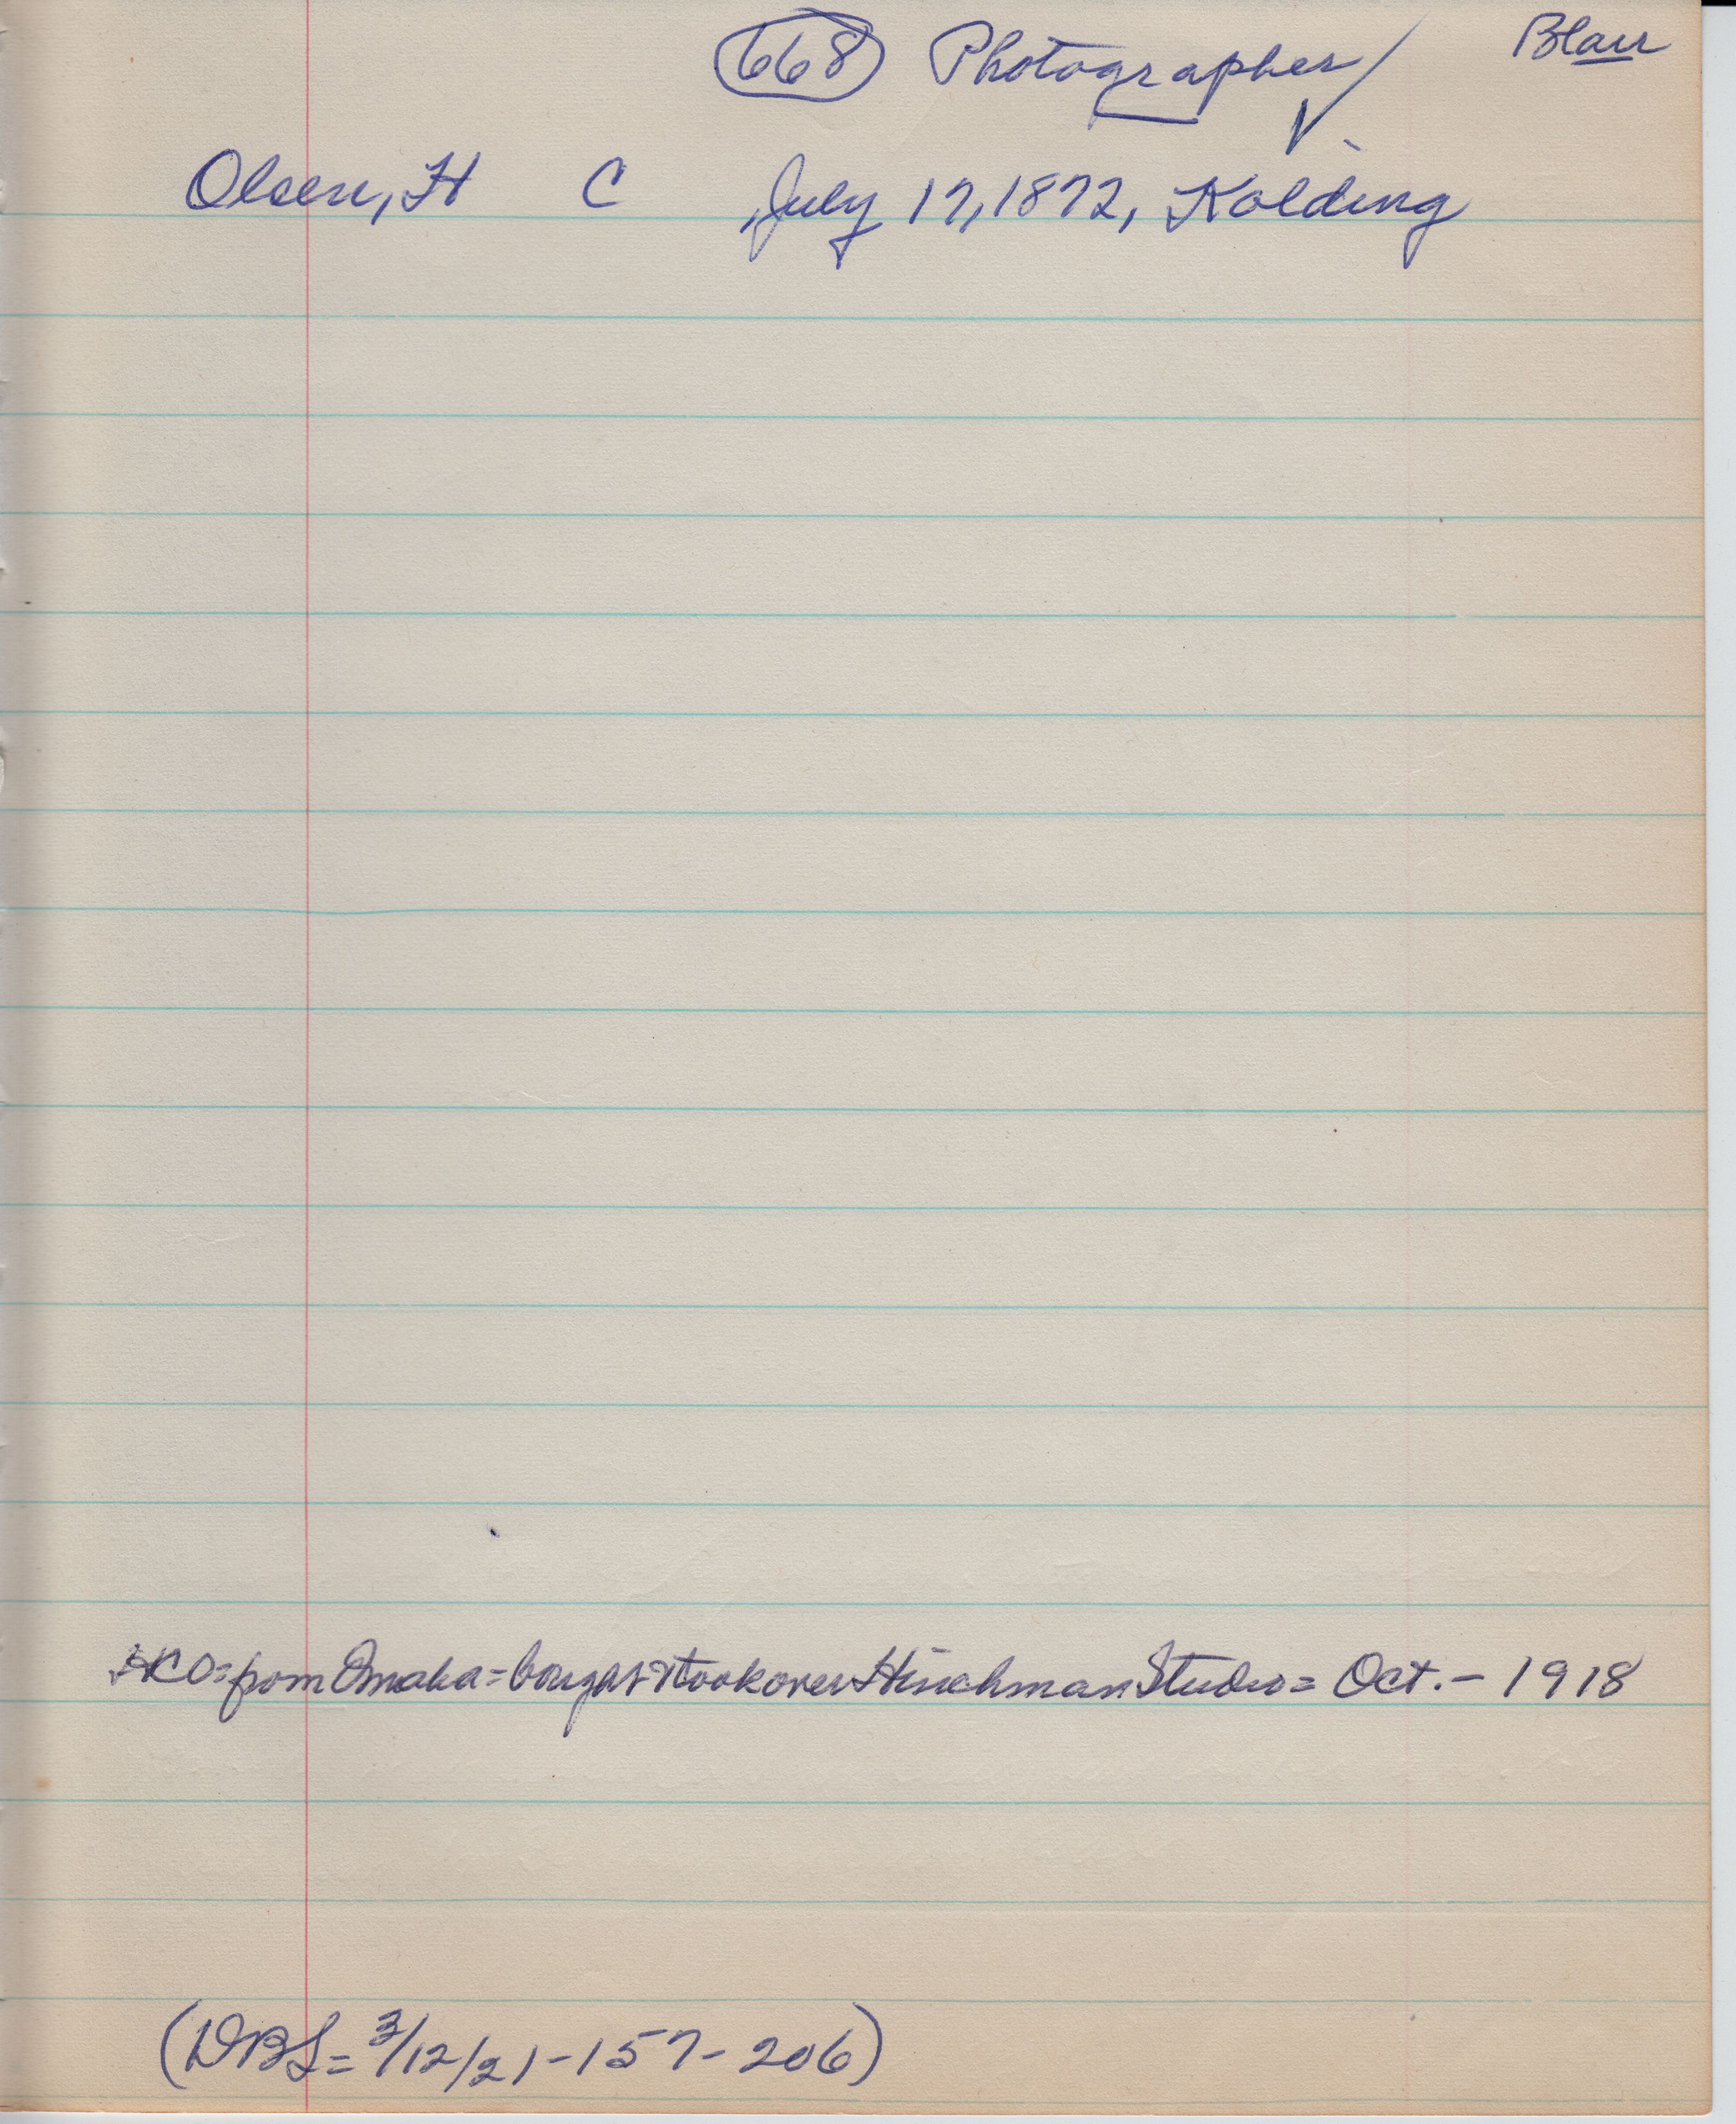 668 Photographer Blair
Olsen, H C July 17, 1872, Kolding
HCO = from Omaha = bought & took over Hinchman Studio = Oct. - 1918
(DBS = 3/12/21 - 157 - 206)